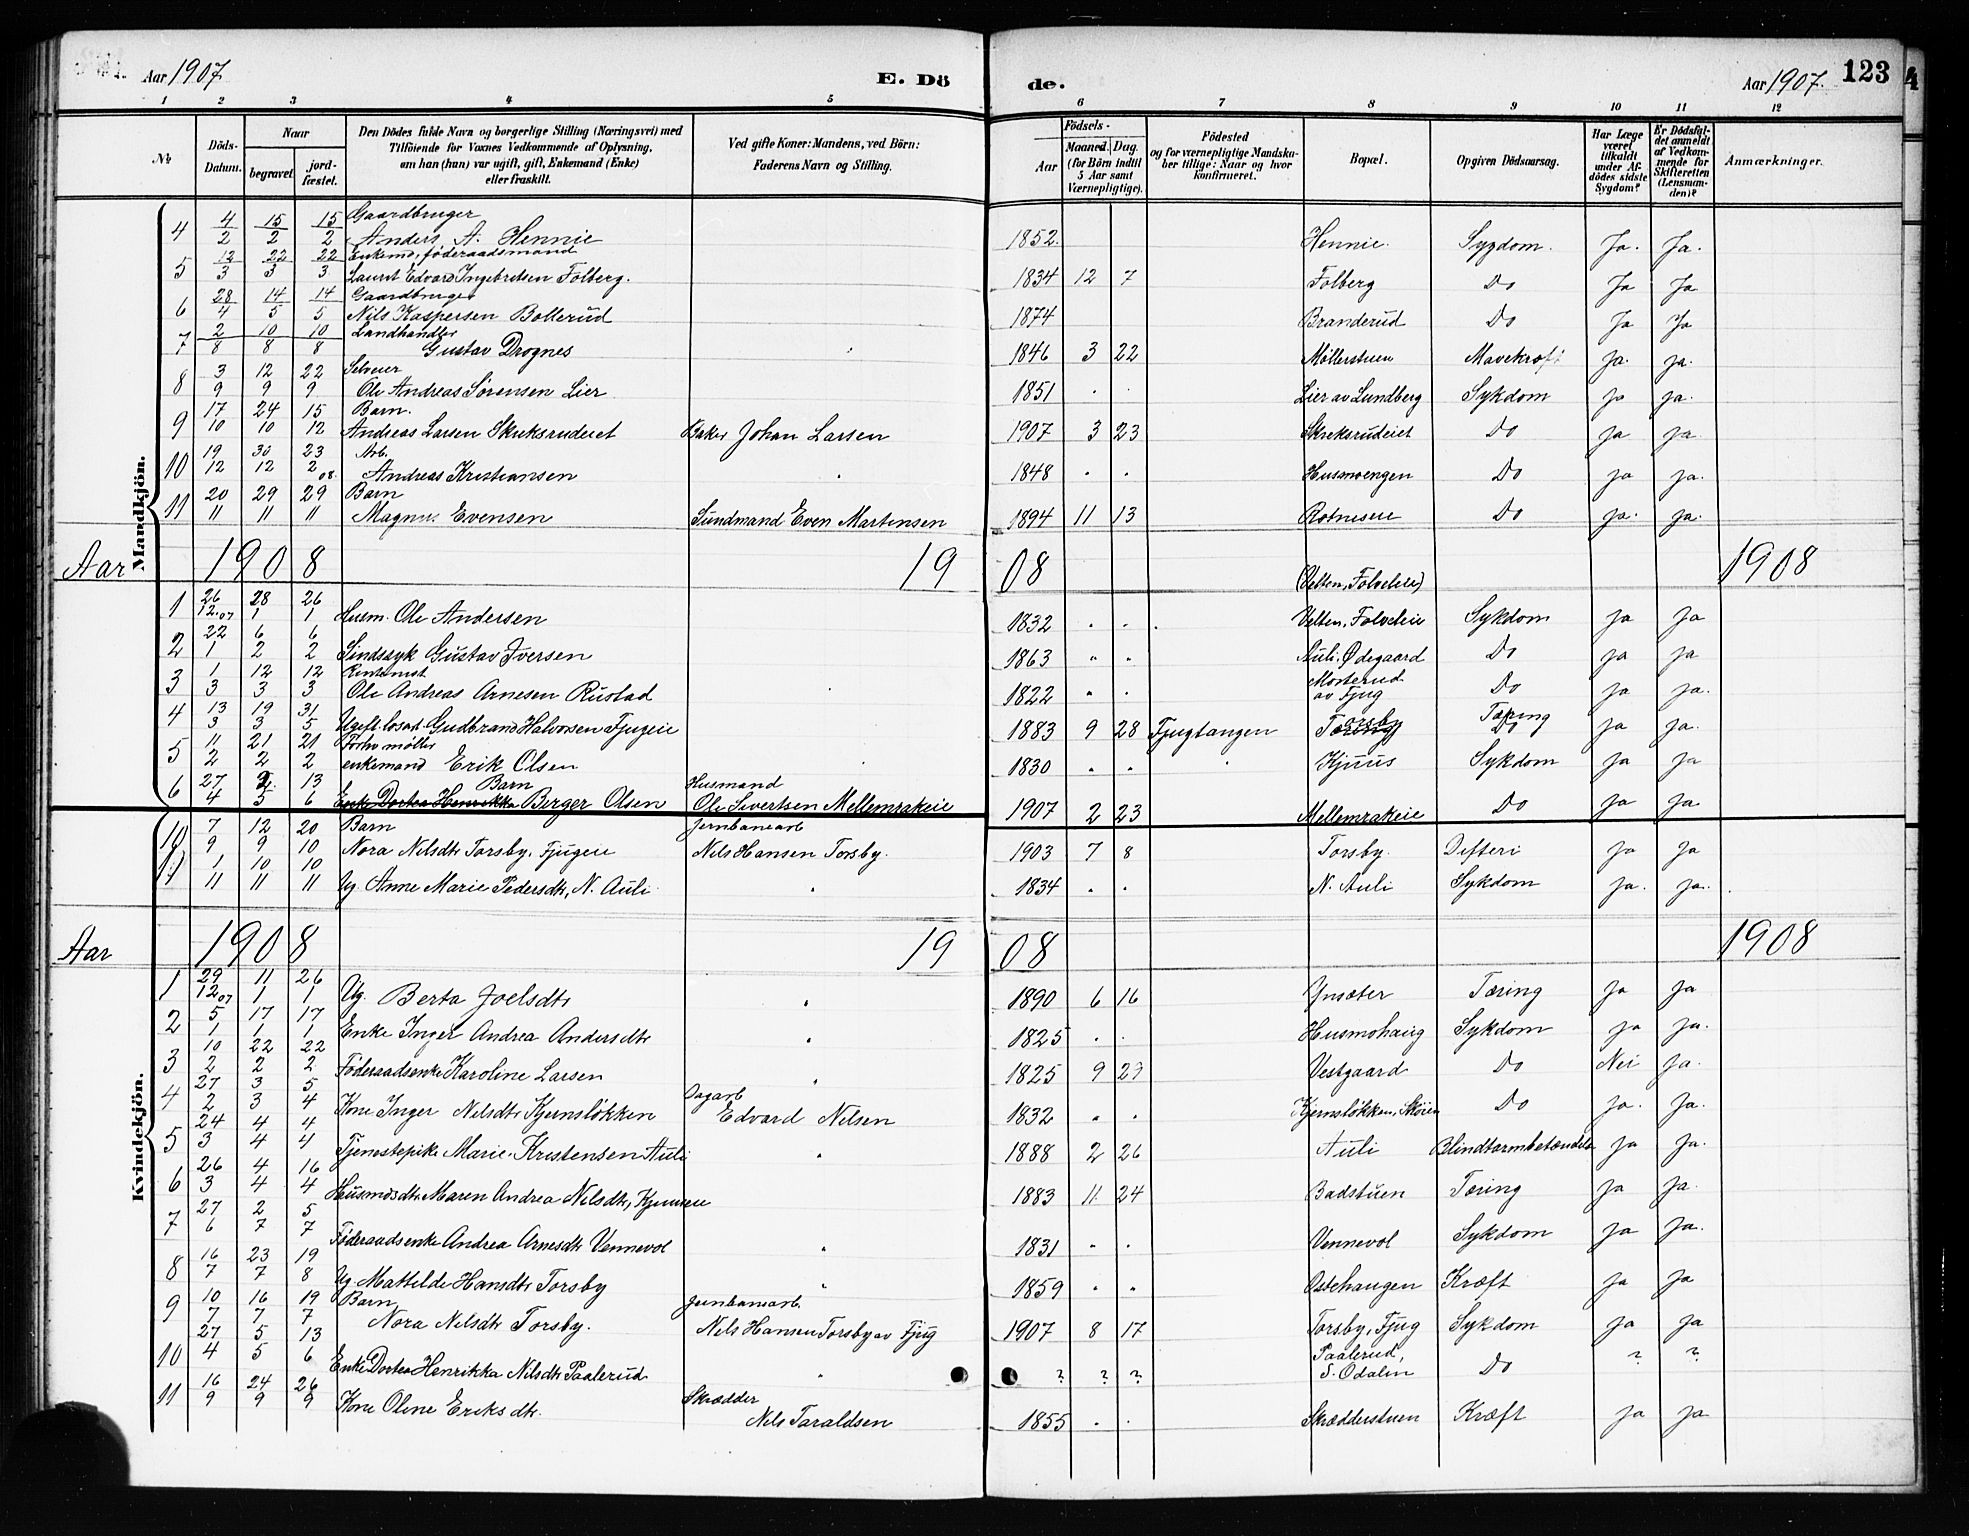 Aar 1907
E. Dö
de.
Aar 1907. 123
1 2 3 4 5 6 7 8 9 10 11 12
No
Döds-Datum.
Naar begravet jordfæstet.
Den Dödes fulde Navn og borgerlige Stilling (Næringsvei) med Tilföiende for Voxnes Vedkommende af Oplysning, om han (hun) var ugift, gift, Enkemand (Enke) eller fraskilt.
Ved gifte Koner: Mandens, ved Börn: Faderens Navn og Stilling.
Födsels-
Aar Maaned. Dag. (for Börn indtil 5 Aar samt Værnepligtige).
Födested og for værnepligtige Mandskaber tillige: Naar og hvor konfirmeret.
Bopæl.
Opgiven Dödsaarsag.
Har Læge været tilkaldt under Afdödes sidste Sygdom?
Er Dödsfaldet anmeldt af Vedkommende for Skifteretten (Lensmanden)?
Anmærkninger.
Mandkjön.
4 4/2 15/2 15/2 Gaardbruger Anders A. Hennie 1852. Hennie. Sygdom. Ja. Ja.
5 12/3 22/3 22/3 Enkem., føderaadsmand Laurit Edvard Ingebretsen Folberg. 1834 12 7 Folberg Do Ja Ja
6 28/4 14/5 14/5 Gaardbruger Nils Kaspersen Bollerud 1874 Branderud Do Ja Ja
7 2/8 10/8 10/8 Landhandler Gustav Drognes 1846 3 22 Møllerstuen Mavekræft Ja. Ja.
8 3/9 12/9 22/9 Selveier Ole Andreas Sørensen Lier 1851 . . Lier av Lundberg Sykdom ja ja.
9 17/10 24/10 15/12 Barn. Andreas Larsen Skuksrudeiet Johan Larsen 1907 3 23 Skreksrudeiet Do ja ja.
10 19/12 30/12 23/2 08. Arb. Andreas Kristiansen 1848 . . Husmoengen Do ja ja.
11 20/11 29/11 29/11 Barn Magnus Evensen Sundmand Even Martensen 1894 11 13 Rotnesere Do ja. ja.
Aar 1908 19
08 1908
(Velten, Folveleie)
1 26/12.07 28/1 26/1 Husm. Ole Andersen 1832 . . . Velten, Folveleie Sykdom ja ja
2 22/1 6/2 6/2 Sindssyk Gustav Iversen 1863 " " Auli. Ødegaard Do ja ja
3 1/3 12/3 12/3 Rentenist Ole Andreas Arnesen Rustad 1822 " . Morterud av Fjug Do ja ja.
4 13/3 19/3 31/5 Ugift. losart. Gudbrand Halvorsen Fjugeie 1883 9 28 Fjugtangen Torsby Tæring ja ja
5 11/2 21/2 21/2 Forhv møller enkemand Erik Olsen 1830 . . Kjuus Sykdom ja ja
6 27/4 2/5 13/6 Barn Enke Dortea Henrikka Berger Olsen Husmand Ole Sivertsen Mellemrakeie 1907 2 23 Mellemrakeie Do ja ja
Kvindekjön.
10 7/9 12/9 20/10 Barn Nora Nilsdtr Torsby, Fjugeie Jernbanearb Nils Hansen Torsby. 1903 7 8 Torsby. Difteri ja ja
11 1/11 10/11 10/11 Ug. Anne Marie Pedersdtr, N. Auli 1834 . . N. Auli Sykdom ja. ja.
Aar 1908 19
08 1908
1 29/12.07 11/1 26/1 Ug. Berta Joelsdtr 1890 6 16 Ynsæter Tæring ja ja
2 5/1 17/1 17/1 Enke Inger Andrea Andersdtr 1825 . . Husmohaug Sykdom ja ja.
3 10/2 22/2 22/2 Føderaadsenke Karoline Larsen 1825 9 23 Vestgaard Do Nei ja.
4 27/2 3/3 5/4 Kone Inger Nilsdtr Kjernsløkken Dagarb Edvard Nilsen 1832 . . Kjernsløkken, Skøien Do ja. ja.
5 24/3 4/4 4/4 Tjenestepike Marie Kristensen Auli 1888 2 26 Auli Blindtarmbetændelse ja ja.
6 26/3 4/4 16/4 Husmdsdtr Maren Andrea Nilsdtr, Kjunseie 1883 11 24 Badstuen Tæring ja ja.
7 27/6 2/7 5/7 Føderaadsenke Andrea Arnesdtr Vennevol 1831 " . Vennevol Sykdom ja ja.
8 16/7 23/7 19/8 Ug Mattilde Hansdtr Torsby 1859 " " Ostehaugen Kræft ja ja
9 10/7 16/7 19/7 Barn Nora Nilsdtr Torsby. Jernbanearb. Nils Hansen Torsby av Fjug 1907 8 17 Torsby, Fjug Sykdom ja ja
10 27/4 5/5 13/6 Enke Dortea Henrikka Nilsdtr Paalerud ? ? ? Paalerud, S. Odalen Do ? ?
11 16/9 24/9 26/9 Kone Oline Eriksdtr. Skrædder Nils Taraldsen 1855 . . Skrædderstuen Kræft ja ja